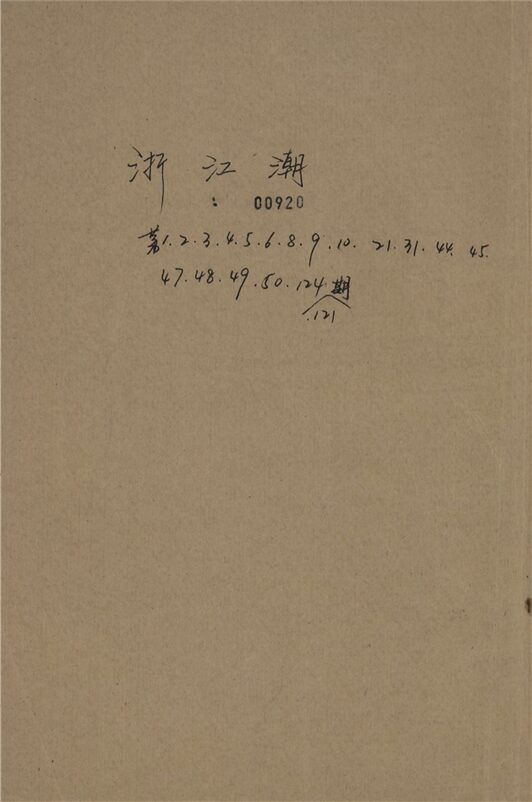 浙江潮
: 00920
第1.2.3.4.5.6.8.9.10. 21.31.44.45.
47.48.49.50.124.期
.121